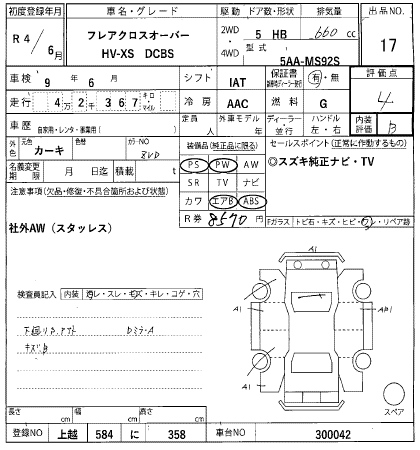 初度登録年月 車名・グレード 駆動 ドア数・形状 排気量 出品NO.
R4/6月 フレアクロスオーバー HV-XS DCBS 2WD・4WD 5 HB 660cc 17
型式 5AA-MS92S
車検 9年6月 シフト IAT 保証書 有・無 評価点
走行 4万2千367キロ・マイル 冷房 AAC 燃料 G 4
車歴 自家用・レンタ・事業用( ) 定員 人 外車モデル 年 ディーラー・並行 ハンドル 左・右 内装評価 B
外色 元色 カーキ 色替 カラーNO
装備品(純正品に限る) セールスポイント(正常に作動するもの)
名義変更期限 月 日迄 積載 t
PS PW AW
◎スズキ純正ナビ・TV
注意事項(欠品・修復・不具合箇所および状態)
SR TV ナビ
カワ エアB ABS
R券 8570円
社外AW(スタッレス)
Fガラス トビ石・キズ・ヒビ・ワン・リペア跡
A1
検査員記入 内装 汚レ・スレ・キズ・キレ・コゲ・穴
A1
A1
下廻りサ、
キズ、
A1
A1
スペア
長さ cm 幅 cm 高さ cm
登録NO 上越 584 に 358 車台NO 300042